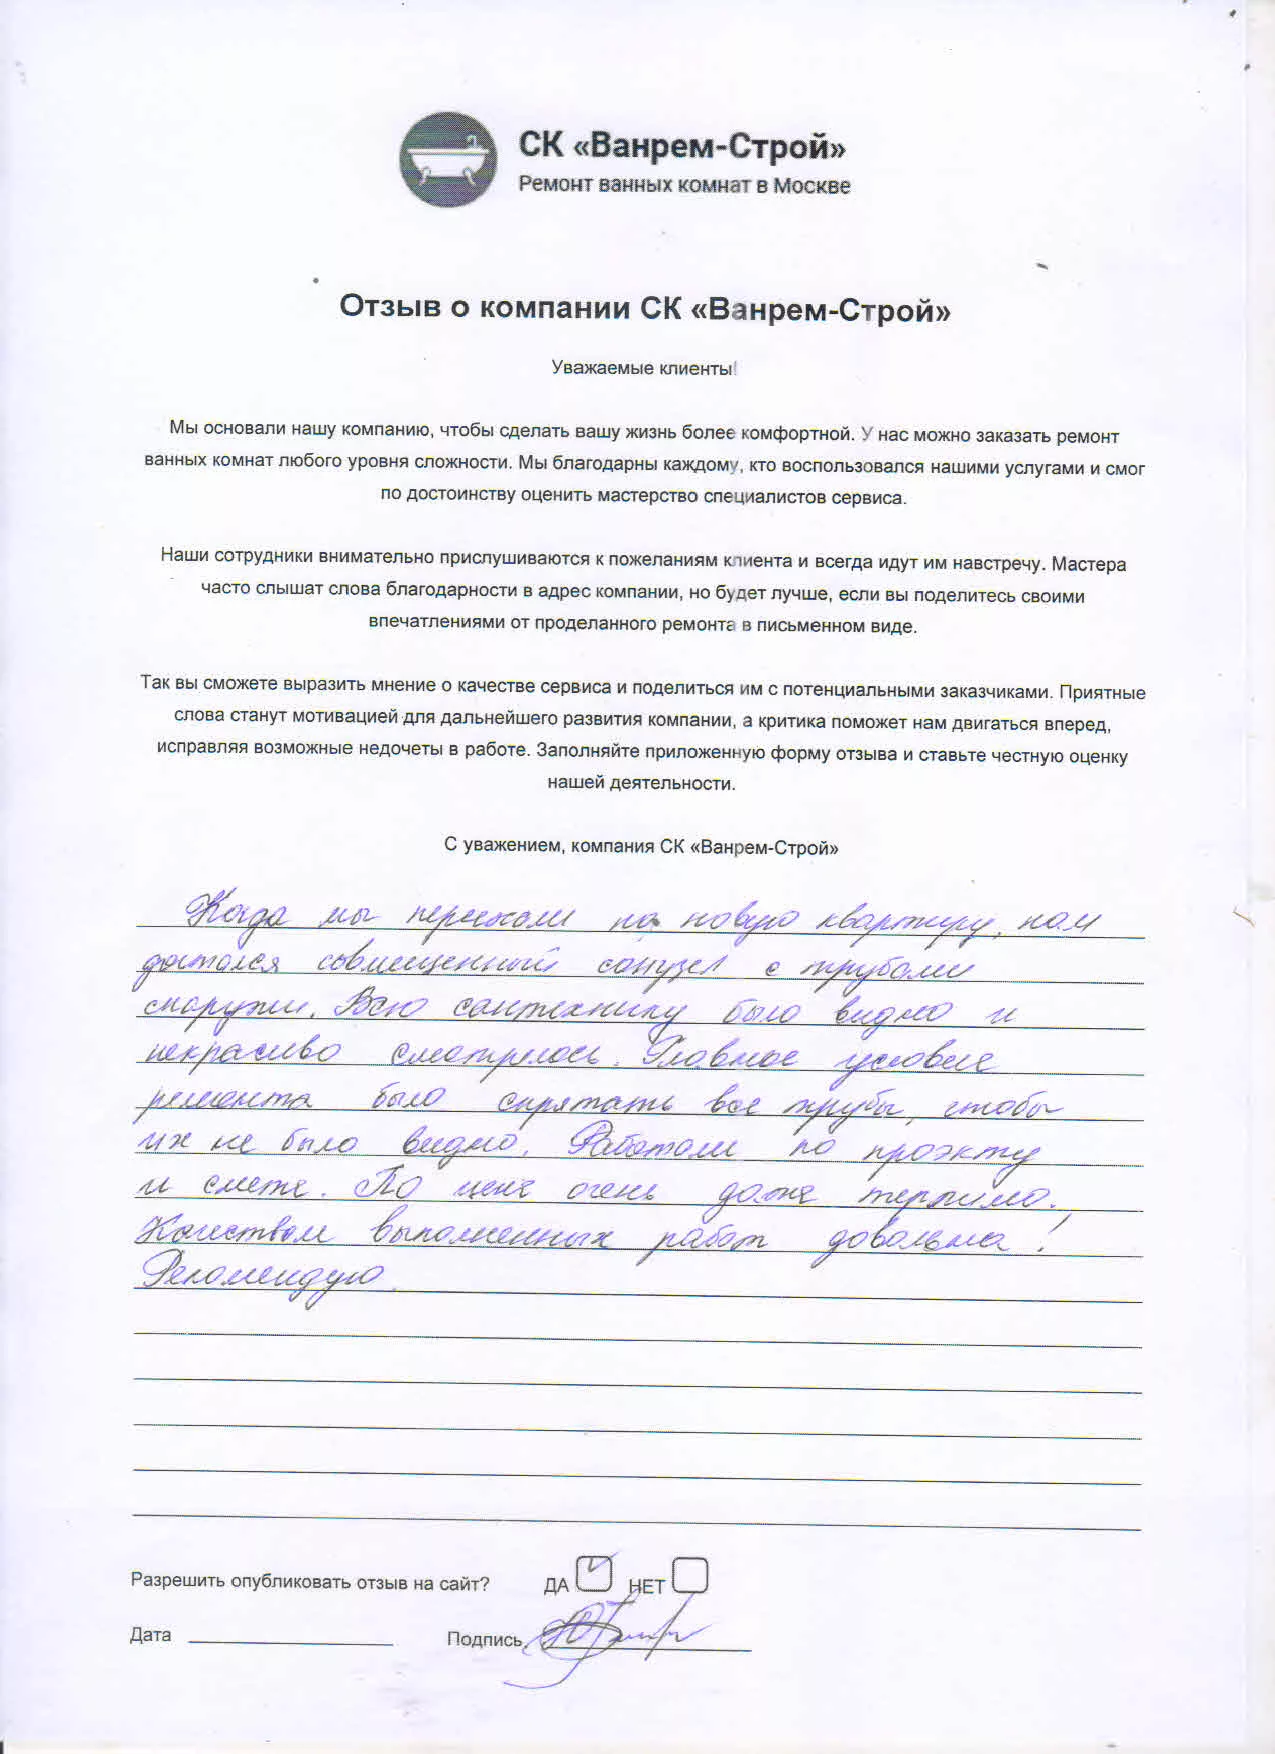 СК «Ванрем-Строй»
Ремонт ванных комнат в Москве
Отзыв о компании СК «Ванрем-Строй»
Уважаемые клиенты!
Мы основали нашу компанию, чтобы сделать вашу жизнь более комфортной. У нас можно заказать ремонт
ванных комнат любого уровня сложности. Мы благодарны каждому, кто воспользовался нашими услугами и смог
по достоинству оценить мастерство специалистов сервиса.
Наши сотрудники внимательно прислушиваются к пожеланиям клиента и всегда идут им навстречу. Мастера
часто слышат слова благодарности в адрес компании, но будет лучше, если вы поделитесь своими
впечатлениями от проделанного ремонта в письменном виде.
Так вы сможете выразить мнение о качестве сервиса и поделиться им с потенциальными заказчиками. Приятные
слова станут мотивацией для дальнейшего развития компании, а критика поможет нам двигаться вперед,
исправляя возможные недочеты в работе. Заполняйте приложенную форму отзыва и ставьте честную оценку
нашей деятельности.
С уважением, компания СК «Ванрем-Строй»
Когда мы переехали на новую квартиру, нам
достался совмещенный санузел с трубами
снаружи. Всю сантехнику было видно и
некрасиво смотрелось. Главное условие
ремонта было спрятать все трубы, чтобы
их не было видно. Работали по проэкту
и смете. По цене очень даже терпимо.
Качеством выполненных работ довольна!
Рекомендую.
Разрешить опубликовать отзыв на сайт? ДА НЕТ
Дата Подпись